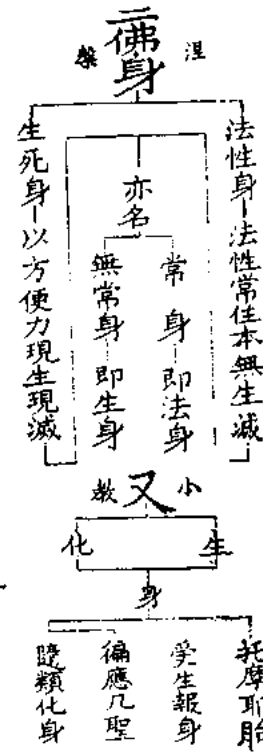 二佛身
涅槃
法性身－法性常住本無生滅
亦名
常身－即法身
無常身－即生身
生死身－以方便力現生現滅
又
小教
生
化
身
托摩耶胎
受生報身
徧應凡聖
隨類化身